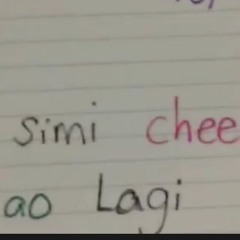 simi chee
ao Lagi